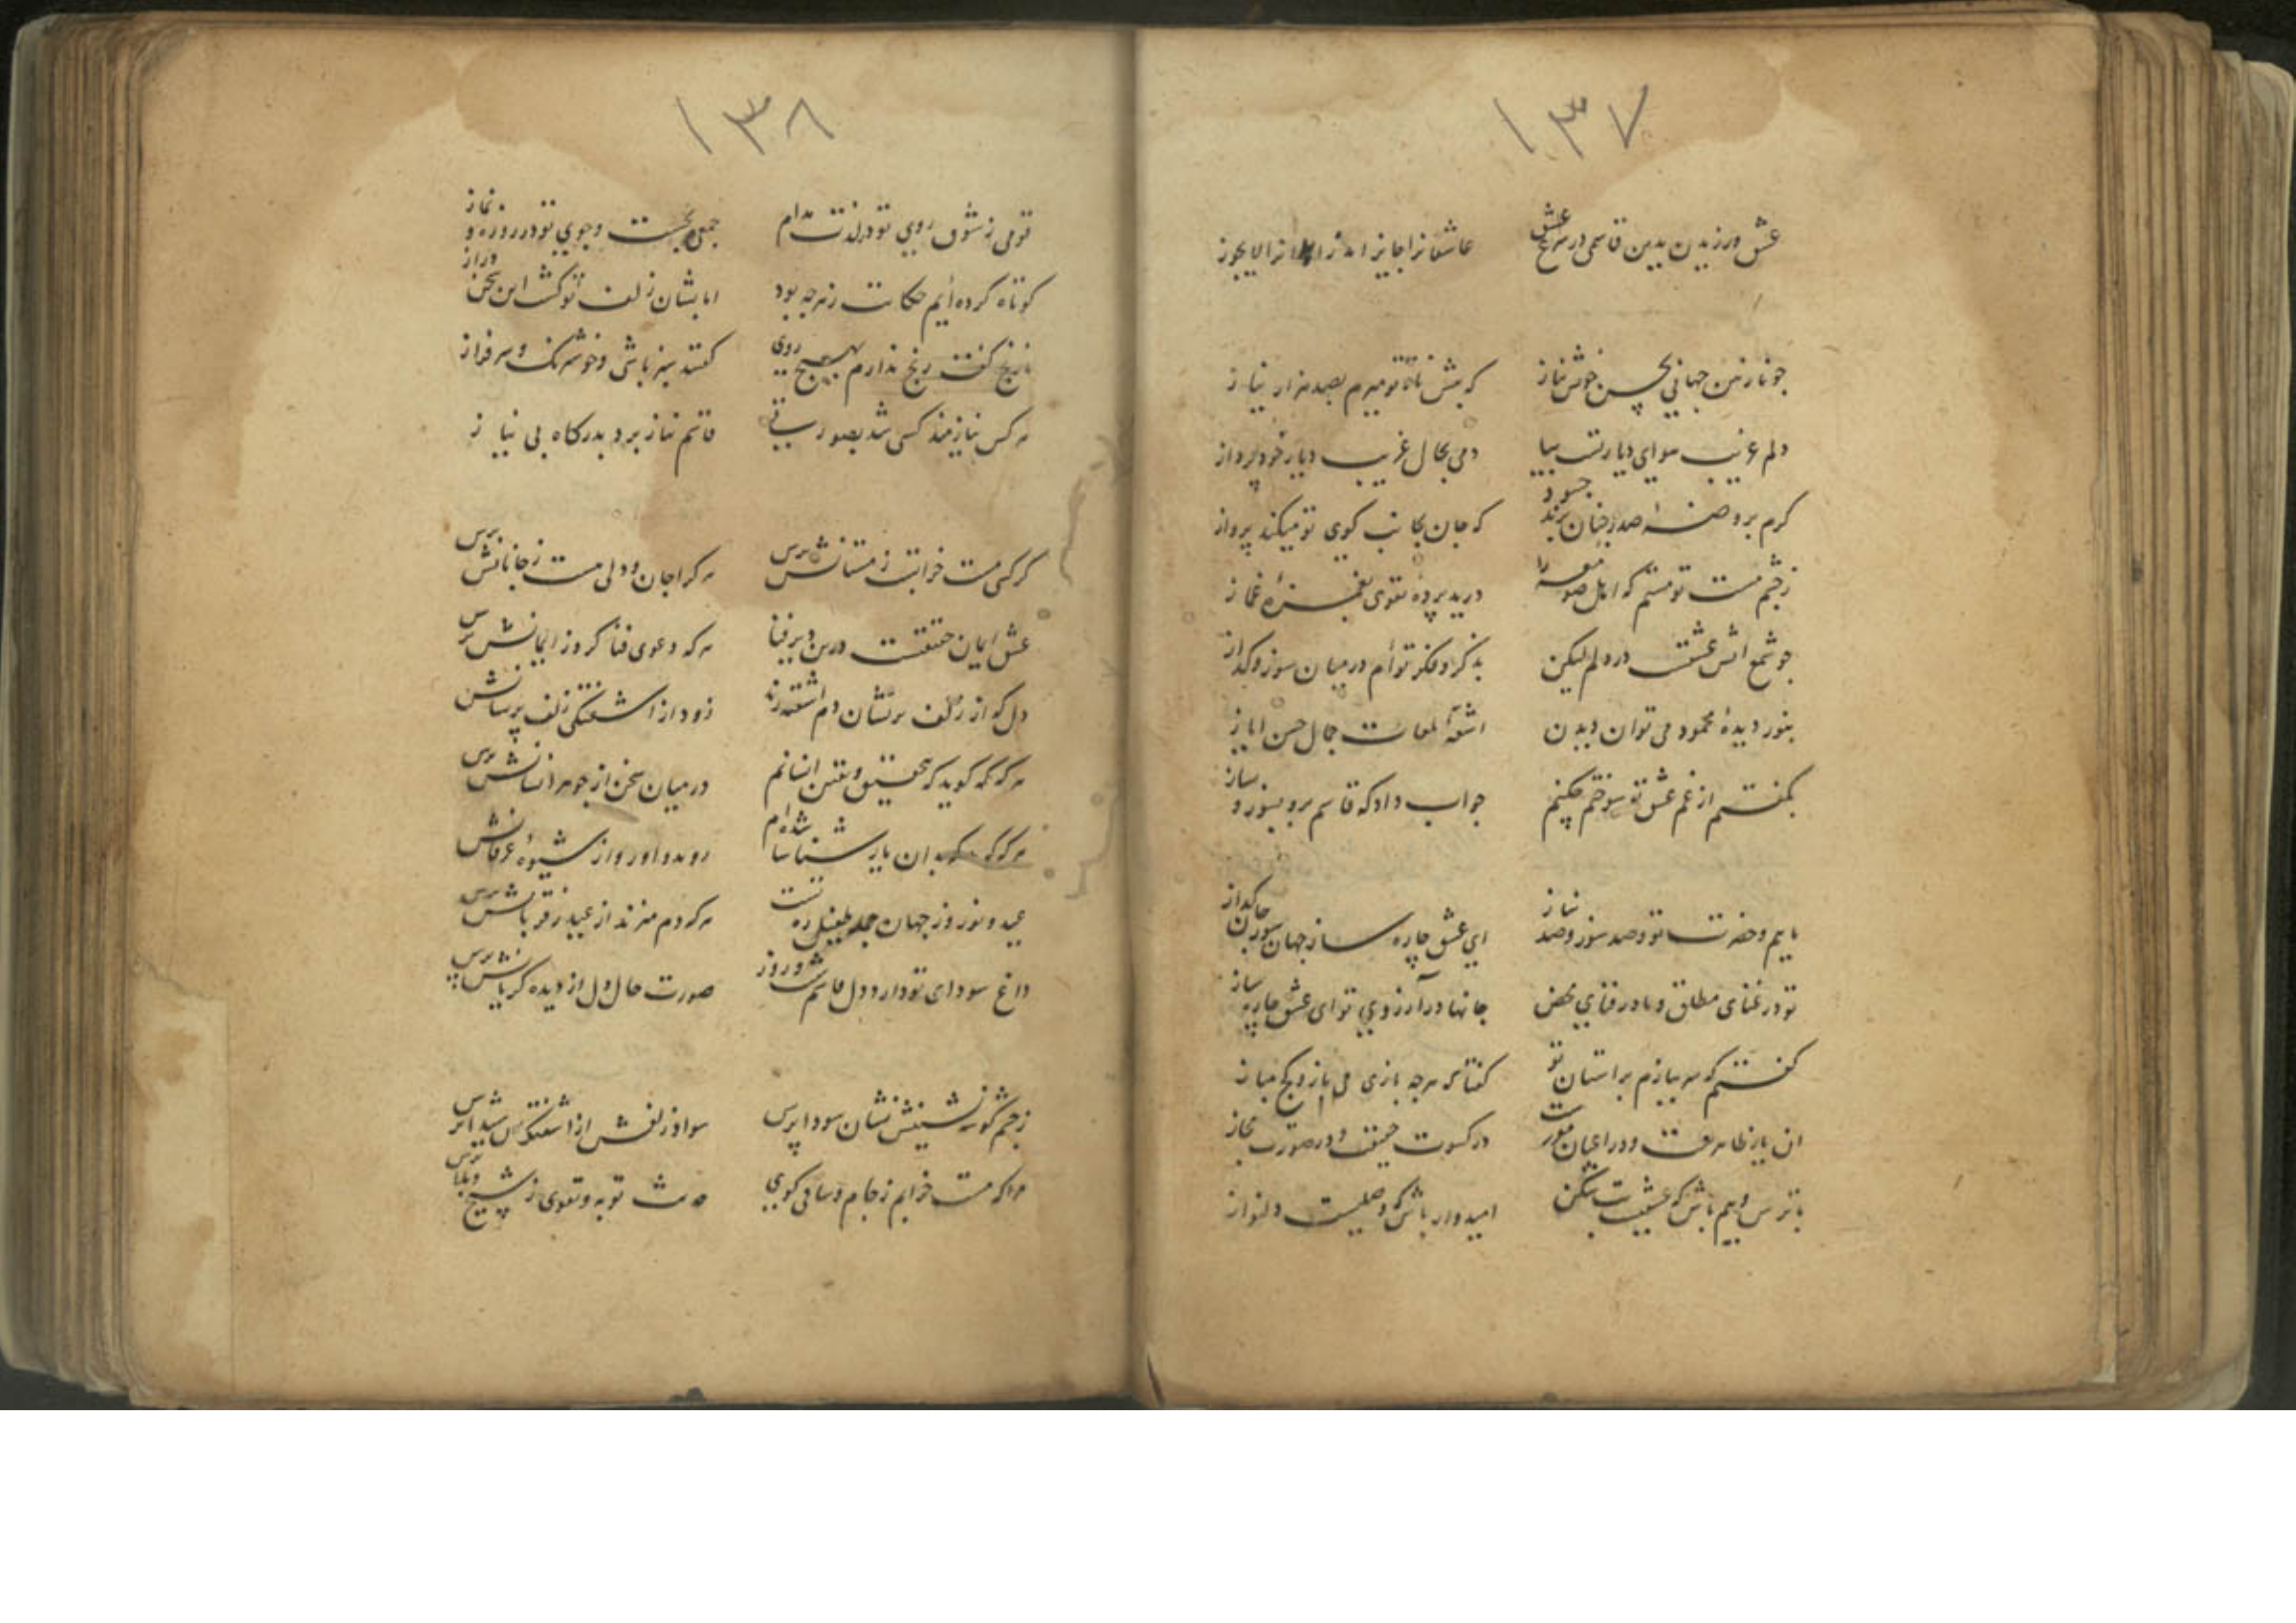 ۱۳۷
عشق ورزیدن بدین قاسمی در شرع عشق
عاشقانرا جایز اند زاهدانرا لایجوز
چو نازنین جهانی بحسن خوش بناز
که پیش ناز تو میرم بصد هزار نیاز
دلم غریب هوای دیار تست بیا
دمی بحال غریب دیار خود پرداز
کرم برو صد چنان برند
که جان بجانب کوی تو میکند پرواز
ز چشم مست تو مستم که اهل صومعه را
درید پردهٔ تقوی بغمزهٔ غماز
چو شمع اتش عشقت در دلم لیکن
بذکر و فکر توام در میان سوز و کداز
بنور دیدهٔ محمود می توان دیدن
اشعهٔ لمعات جمال حسن ایاز
بکفتم از غم عشق تو سوختم چکنم
جواب داد که قاسم برو بسوز و بساز
ماییم و حضرت تو و صد سوز و صد نیاز
ای عشق چاره ساز جهان سوز جان کداز
تو در غنای مطلق و ما در فنای محض
جانها در آرزوی تو ای عشق چاره ساز
کفتم که سر ببازم بر استان تو
کفتا که هرچه بازی می باز و کج مباز
ان یار ظاهرست و در اعیان
در کسوت حقیقت و در صورت مجاز
با ترس و بیم باش که
امیدوار باش که وصلیست دلنواز
۱۳۸
قومی ز شوق روی تو در لذت مدام
جمعی بجست و جوی تو در روزه و نماز
کوتاه کرده ایم حکایت ز هرچه بود
اما بشان زلف تو کشت این سخن دراز
نارنج کفت رنج ندارم بهیچ روی
کفتند سبز باشی و خوشرنک و سرفراز
هر کس نیازمند کسی شد بصورتی
قاسم نیاز برد بدرکاه بی نیاز
کر کسی مست خرابست ز مستانش پرس
هر کرا جان و دلی هست ز جانانش پرس
عشق ایمان حقیقت درین دیر فنا
هر که دعوی فنا کرد ز ایمانش پرس
دل که از زلف پریشان دم اشفته زند
زود از اشفتکی زلف پریشانش
هر که کوید که بتحقیق و یقین انسانم
در میان سخن از جوهر انسانش پرس
هر که بدان یار شناسا شده ام
رو بدو اور و از شیوهٔ عرفانش
عید و نوروز جهان جمله طفیل ره تست
هر که دم میزند از عید ز قربانش پرس
داغ سودای تو دارد دل قاسم شب و روز
صورت حال دل از دیده کریانش پرس
ز چشم کوشه نشینش نشان سودا پرس
سواد زلفش از اشفتکان شیدا پرس
مرا که مست خرابم ز جام و ساقی کوی
حدیث توبه و تقوی ز شیخ پرس